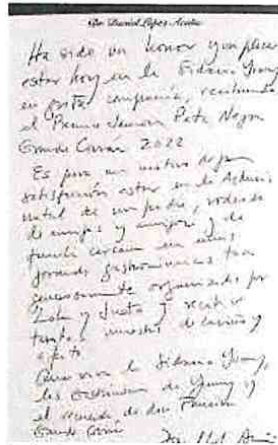 Dr. Daniel López Acuña
Ha sido un honor y un placer
estar hoy en la Sidrería Yumay
en grata compañía, recibiendo
el Premio Jamón Pata Negra
2022
Es para un motivo de gran
satisfacción estar en la Asturias
natal de mi padre, rodeado
de amigos y amigas y de
familia cercana en unas
jornadas gastronómicas tan
generosamente organizadas por
y recibir
tantas muestras de cariño y
afecto
Que viva la Sidrería Yumay,
de Yumay y
el recuerdo de don Francisco